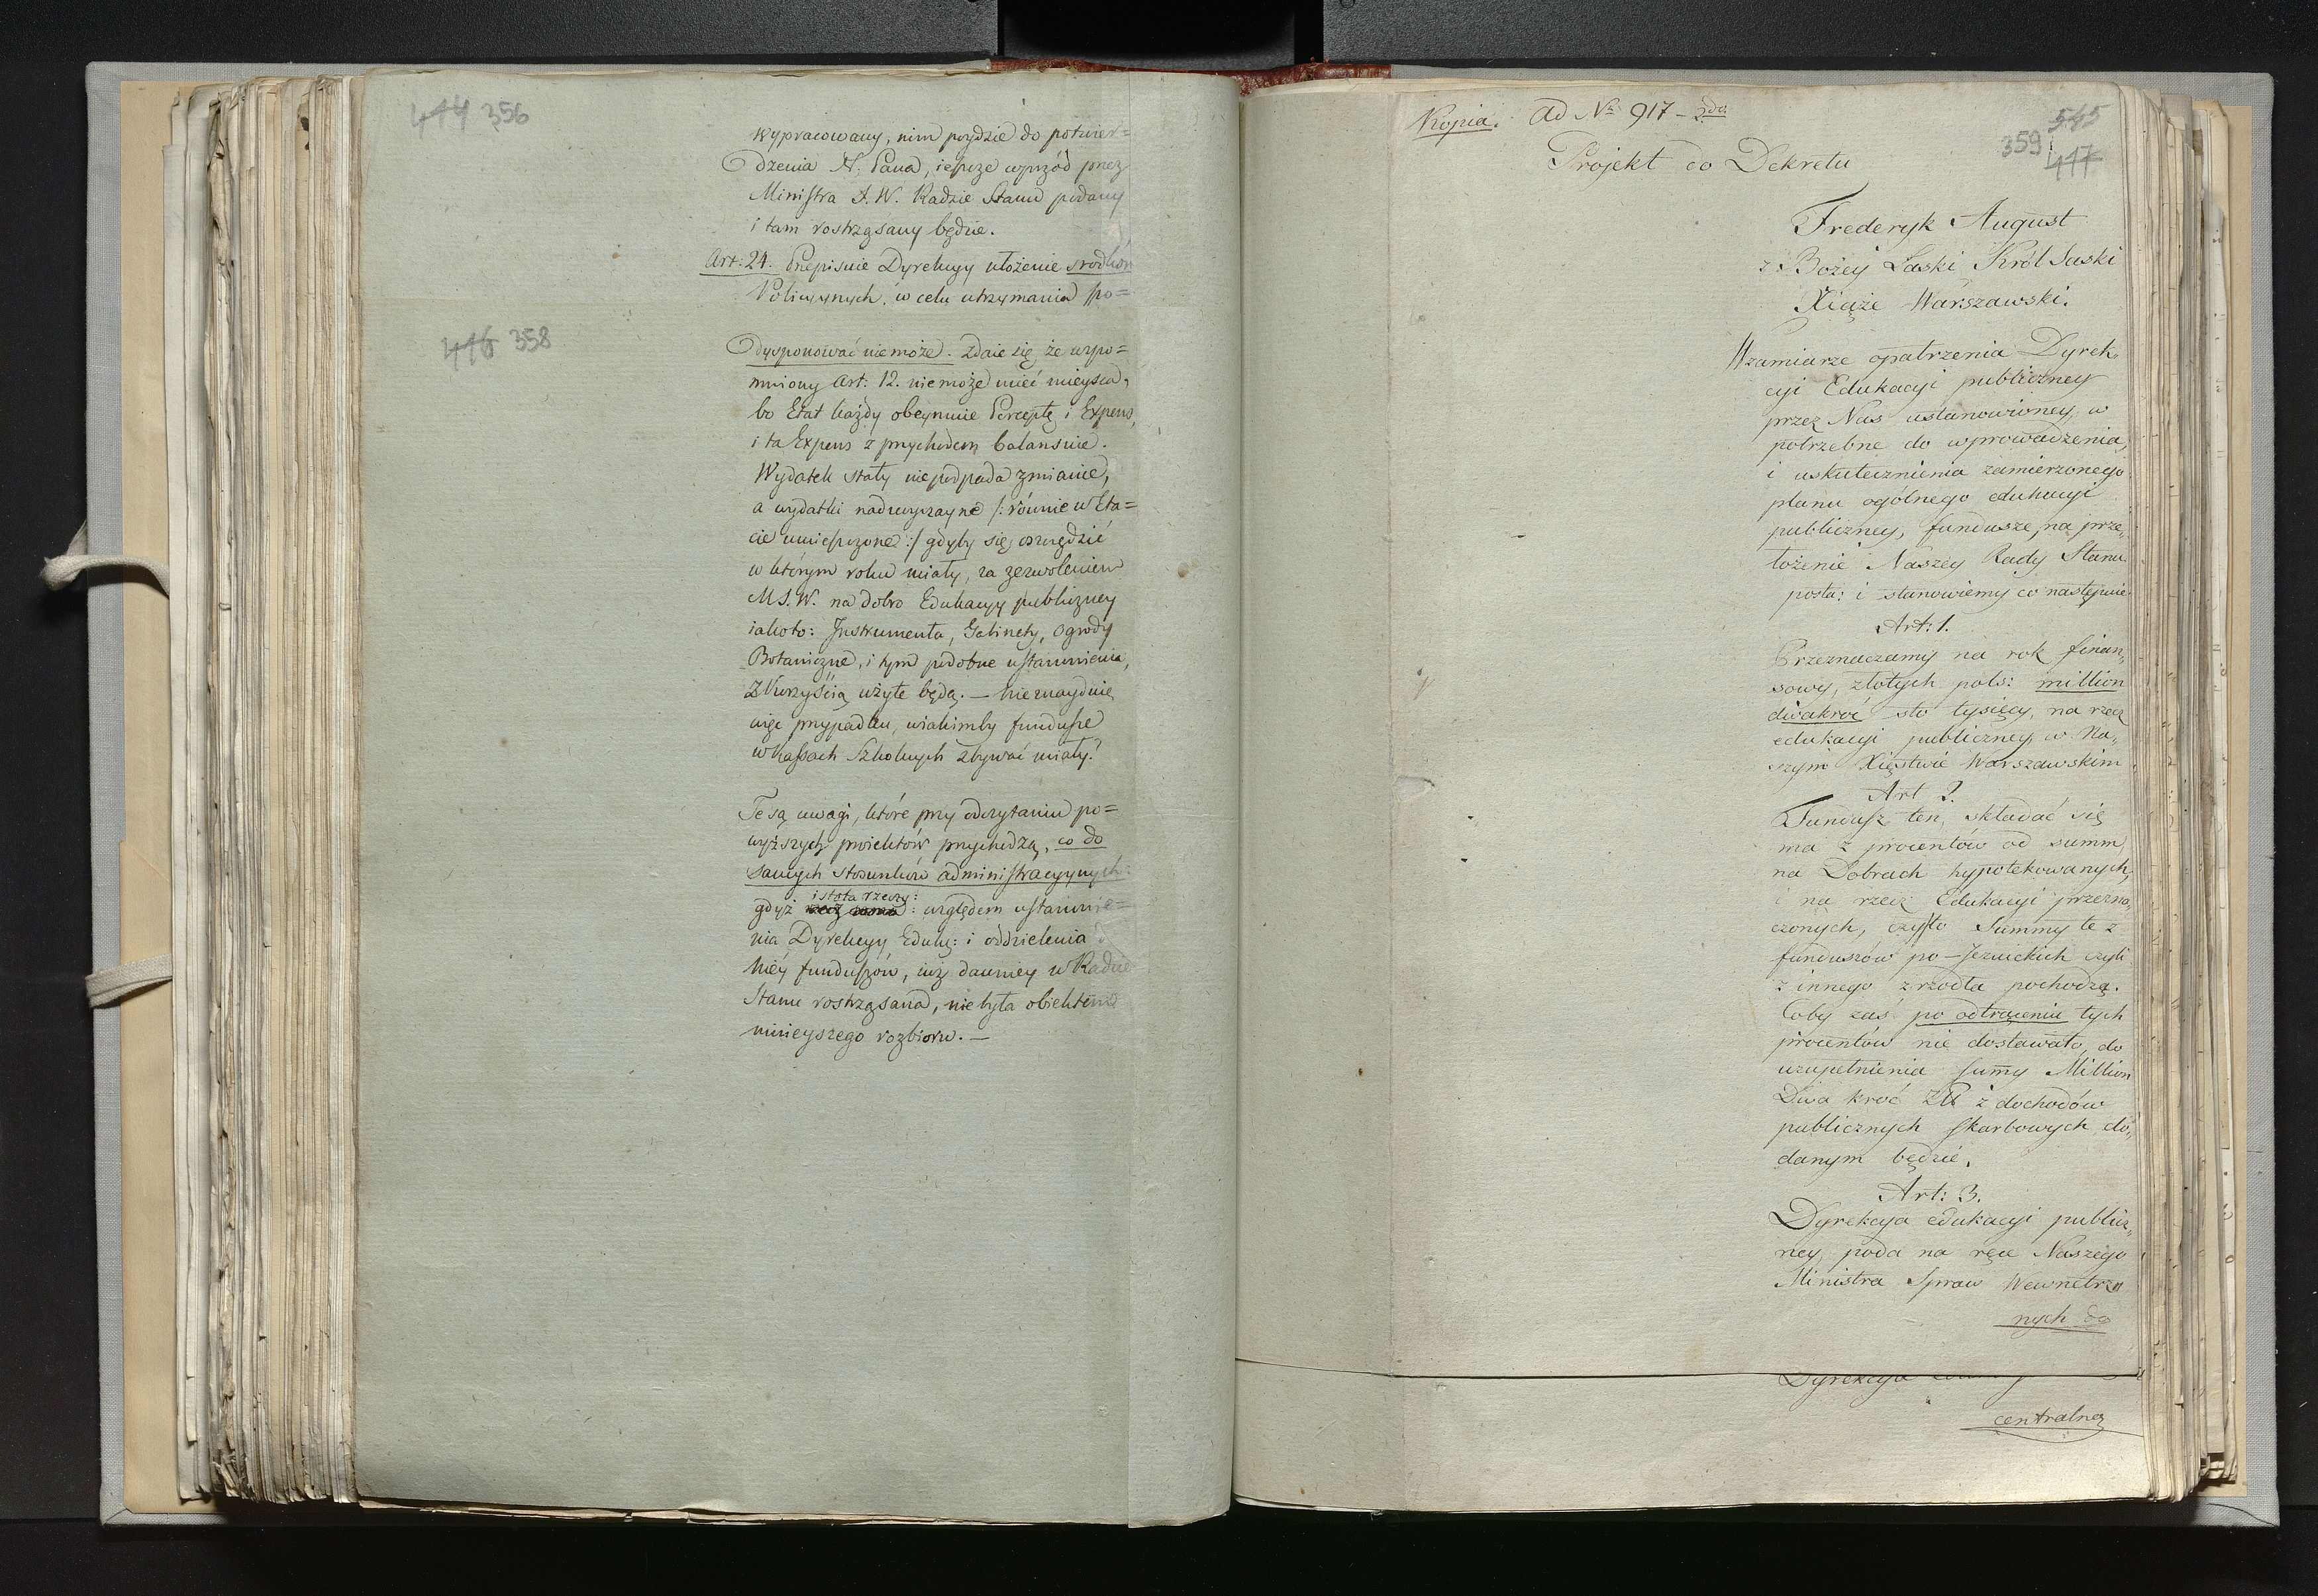 444 356
wypracowany, nim póydzie do potwier=
dzenia N. Pana, iescze wprzód przez
Ministra S. W. Radzie Stanu podany
i tam rostrząsany będzie.
Art: 24. Przepisuie Dyrekcyy ułożenie srodków
Policyynych, w celu utrzymania spo=
446 358
dysponować nie może. Zdaie się że wspo=
mniony Art: 12. nie może mieć mieysca,
bo Etat każdy obeymuie Perceptę i Expens,
i ta Expens z przychodem balansuie.
Wydatek stały nie podpada zmianie,
a wydatki nadzwyczayne /: równie w Eta=
cie umiesczone :/ gdyby się oszczędzić
w którym roku miały, za zezwoleniem
M S. W. na dobro Edukacyy publiczney
iakoto: Instrumenta, Gabinety, Ogrody
Botaniczne, i tym podobne ustanowienia,
z korzyścią użyte będą. — Nie znayduie
więc przypadku, w iakimby fundusze
w Kassach Szkolnych zbywać miały?
Te są uwagi, które przy odczytaniu po=
wyższych proiektów przychodzą, co do
samych stosunków administracyynych:
istota rzeczy:
gdyż rzecz sama: względem ustanowie=
nia Dyrekcyy Eduk: i oddzielenia
Niéy funduszów, iuż dawniey w Radzie
Stanu rostrząsana, nie była obiektem
ninieyszego rozbioru. —
Kopia. Ad Nr 917 - 2da
545
359
447
Projekt do Dekretu
Frederyk August
z Bożey Łaski Król Saski
Xiąże Warszawski.
W zamiarze opatrzenia Dyrek„
cyi Edukacyi publiczney
przez Nas ustanowioney, w
potrzebne do wprowadzenia,
i uskutecznienia zamierzonego
planu ogólnego edukacyi
publiczney, fundusze, na prze„
łożenie Naszey Rady Stanu
posta: i stanowiemy co następuie.
Art: 1.
Przeznaczamy na rok finan„
sowy, złotych pols: million
dwakroć sto tysięcy, na rzecz
edukacyi publiczney, w Na„
szym Xięstwie Warszawskim
Art 2.
Fundusz ten, składać się
ma z procentów od summ
na Dobrach hypotekowanych,
i na rzecz Edukacyi przezna„
czonych, czyto Summy te z
funduszów po-Jezuickich czyli
z innego zrzodła pochodzą.
Coby zaś po odtrąceniu tych
procentów nie dostawało, do
uzupełnienia summy Million
Dwa kroć ZŁ z dochodów
publicznych skarbowych do„
danym będzie.
Art: 3.
Dyrekcya edukacyi publicz„
ney, poda na ręce Naszego
Ministra Spraw Wewnetrzn
nych do
Dyrekcya
centralną